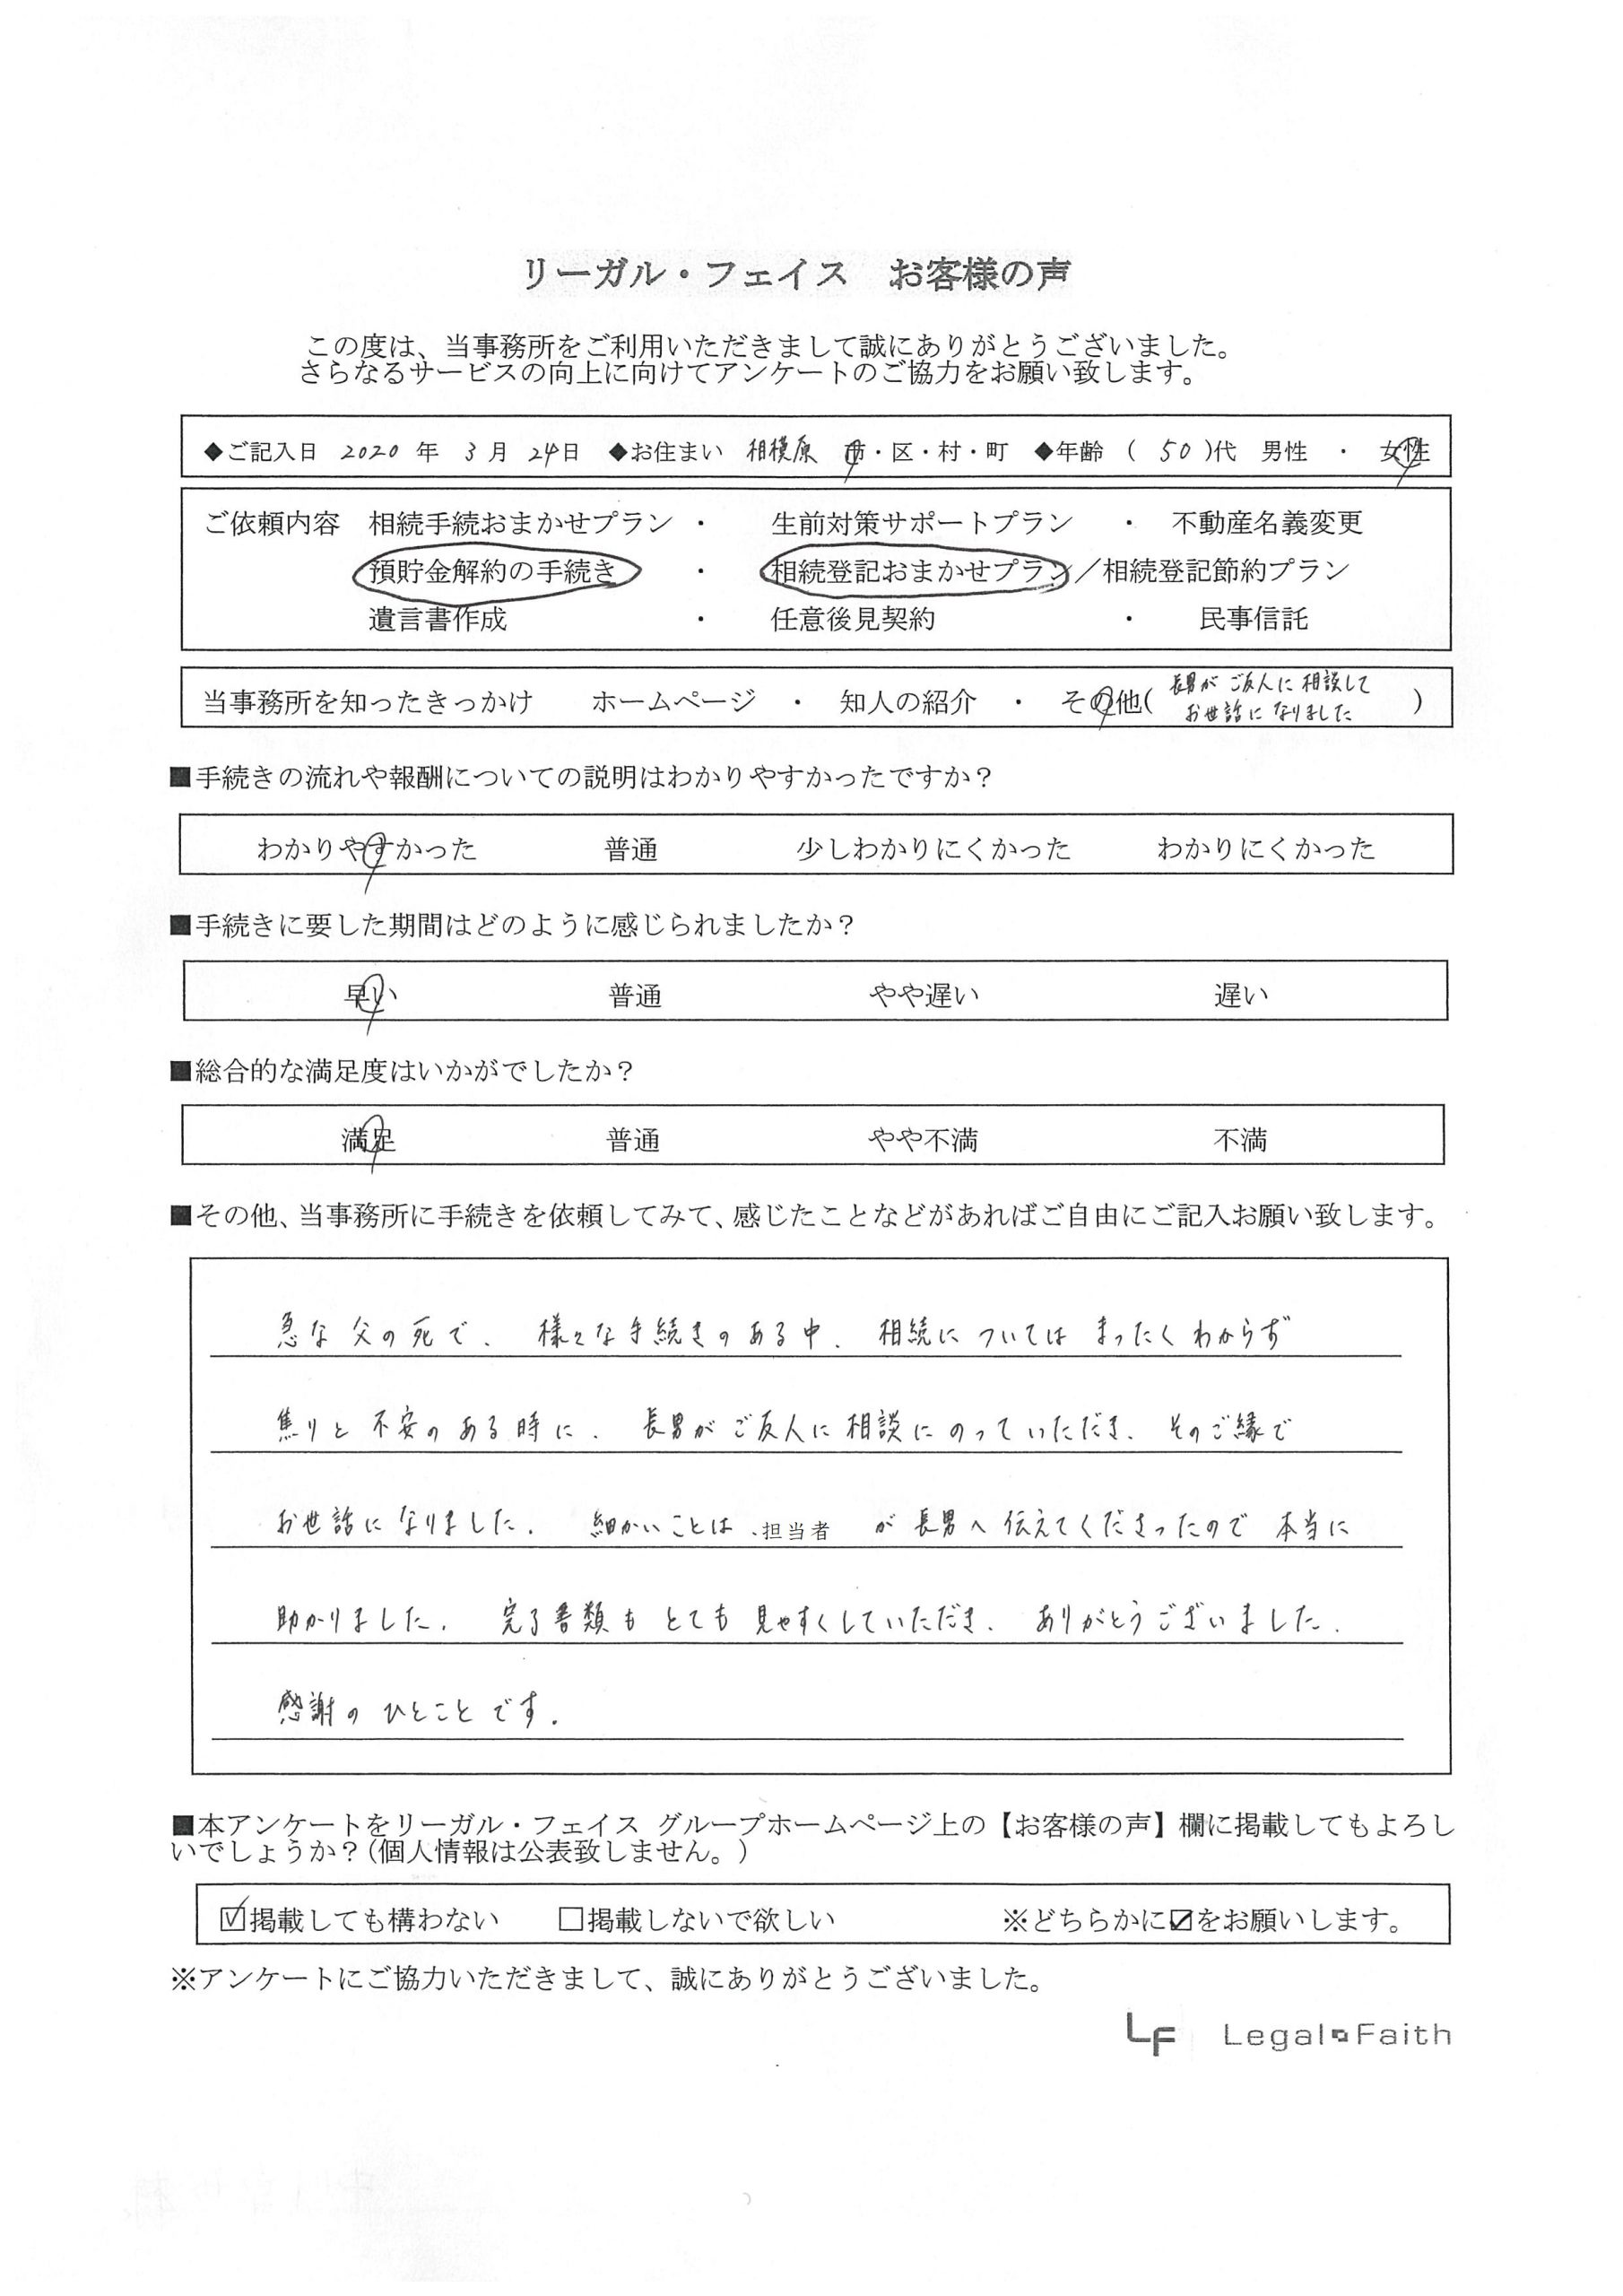 リーガル・フェイス　お客様の声
この度は、当事務所をご利用いただきまして誠にありがとうございました。
さらなるサービスの向上に向けてアンケートのご協力をお願い致します。
◆ご記入日　2020 年　3 月　24日　◆お住まい　相模原　市・区・村・町　◆年齢　（　50　）代　男性　・　女性
ご依頼内容　相続手続おまかせプラン　・　生前対策サポートプラン　・　不動産名義変更
預貯金解約の手続き　・　相続登記おまかせプラン／相続登記節約プラン
遺言書作成　・　任意後見契約　・　民事信託
当事務所を知ったきっかけ　ホームページ　・　知人の紹介　・　その他（長男がご友人に相談して
お世話になりました　）
■手続きの流れや報酬についての説明はわかりやすかったですか？
わかりやすかった　普通　少しわかりにくかった　わかりにくかった
■手続きに要した期間はどのように感じられましたか？
早い　普通　やや遅い　遅い
■総合的な満足度はいかがでしたか？
満足　普通　やや不満　不満
■その他、当事務所に手続きを依頼してみて、感じたことなどがあればご自由にご記入お願い致します。
急な父の死で、様々な手続きのある中、相続についてはまったくわからず
焦りと不安のある時に、長男がご友人に相談にのっていただき、そのご縁で
お世話になりました。細かいことは、担当者　が長男へ伝えてくださったので本当に
助かりました。完了書類もとても見やすくしていただき、ありがとうございました。
感謝のひとことです。
■本アンケートをリーガル・フェイス グループホームページ上の【お客様の声】欄に掲載してもよろし
いでしょうか？（個人情報は公表致しません。）
☑掲載しても構わない　□掲載しないで欲しい　※どちらかに☑をお願いします。
※アンケートにご協力いただきまして、誠にありがとうございました。
LF Legal Faith